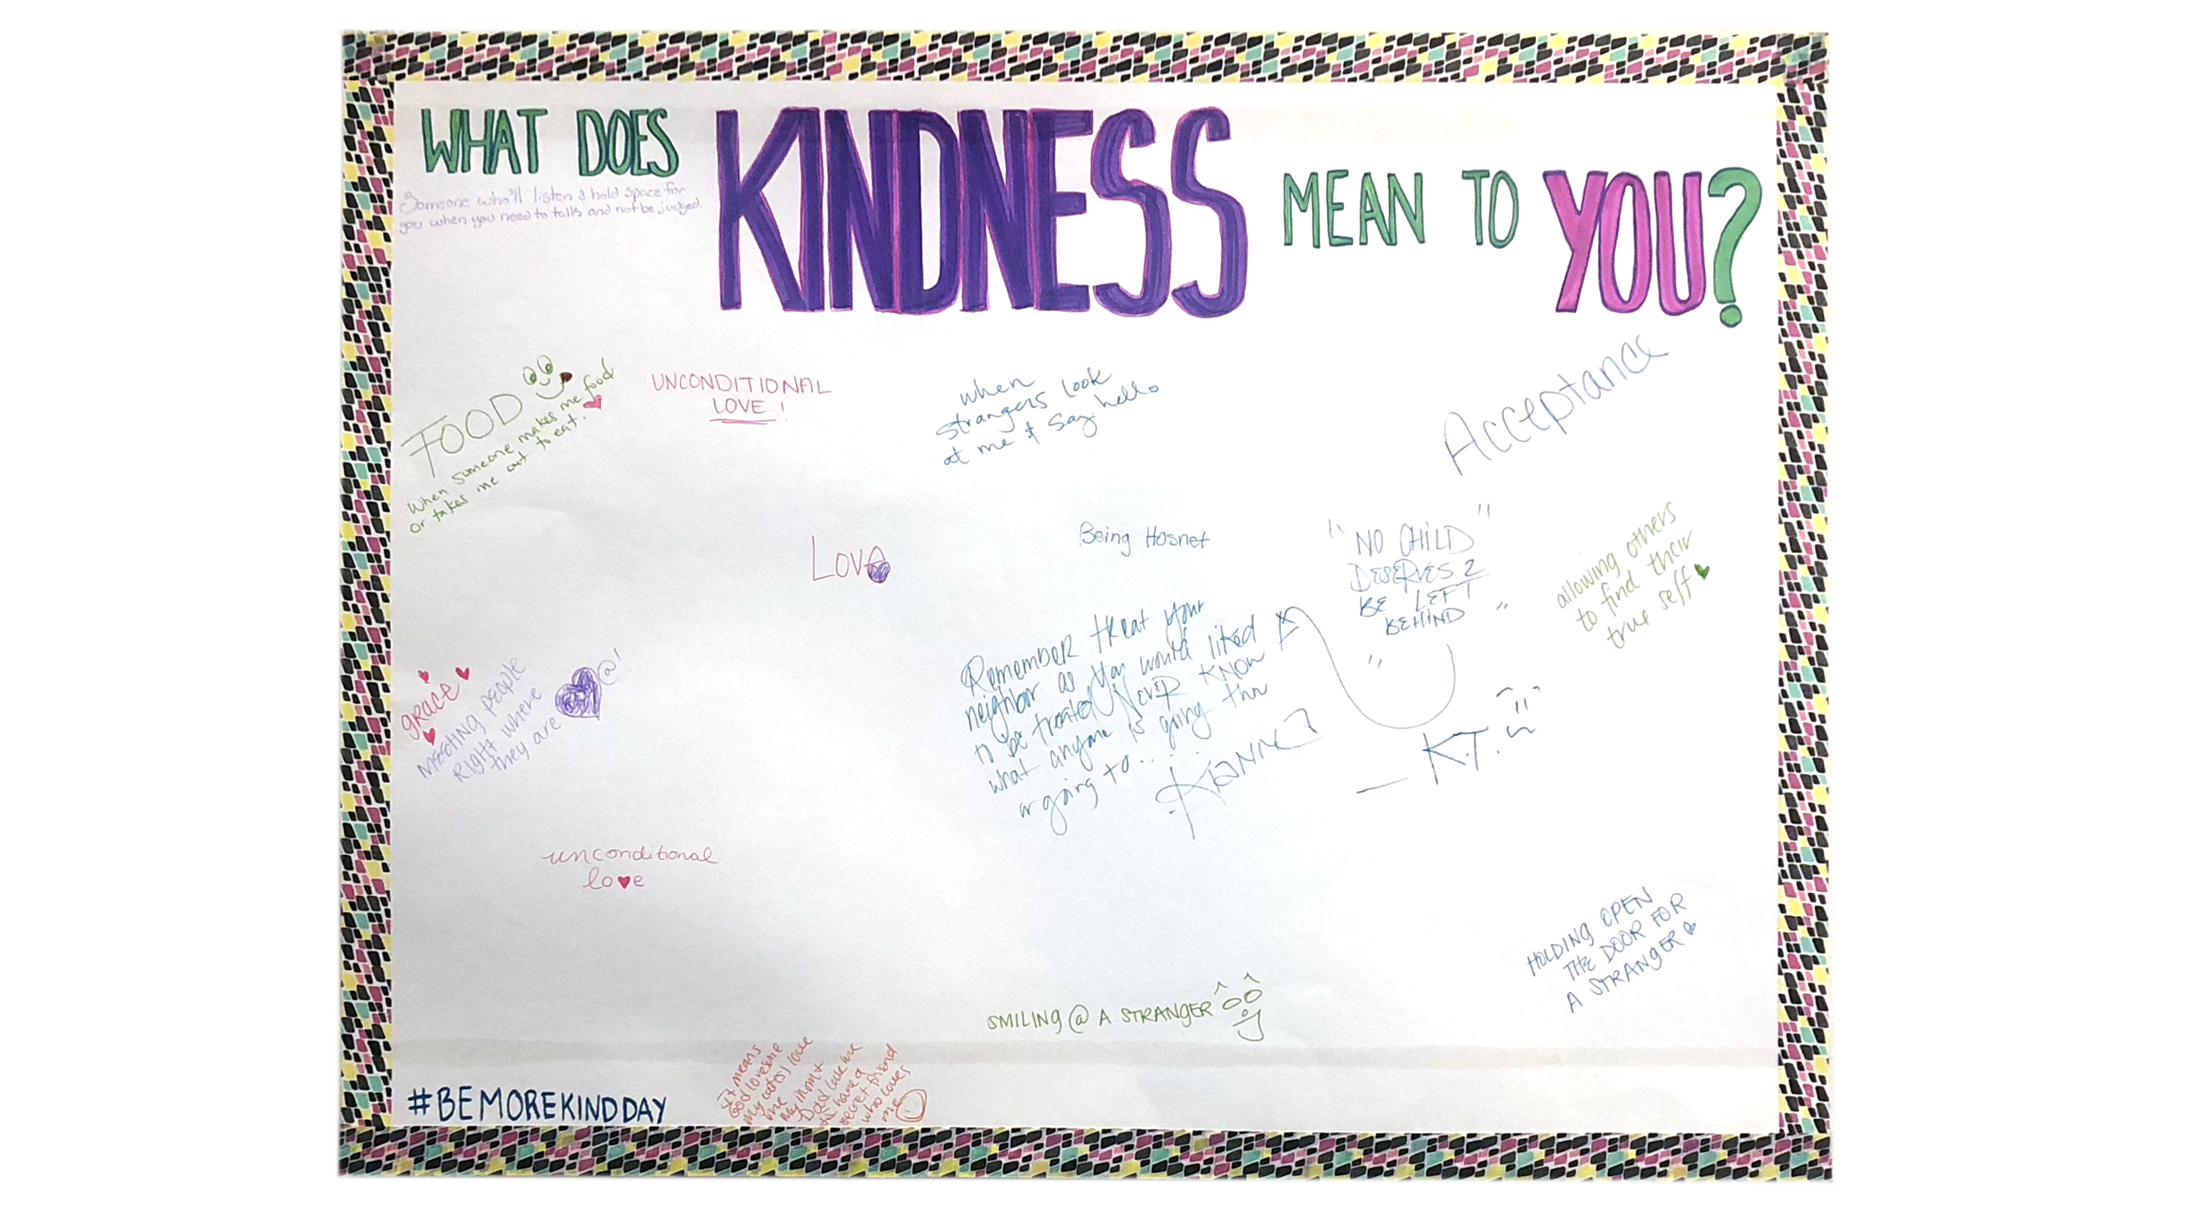 WHAT DOES KINDNESS MEAN TO YOU?
Someone who'll listen & hold space for
you when you need to talk and not be judged
FOOD
When someone makes me food
or takes me out to eat.
UNCONDITIONAL
LOVE!
when
strangers look
at me & say hello
Acceptance
LOVE
Being Hosnet
"NO CHILD
DESERVES 2
BE LEFT
BEHIND"
— K.T.
allowing others
to find their
true self
Remember treat your
neighbor as you would liked
to be treated Never KNOW
what anyone is going thru
or going to...
grace
MEETING PEOPLE
RIGHT where
they are @!
unconditional
love
HOLDING OPEN
THE DOOR FOR
A STRANGER
SMILING @ A STRANGER
It means
God loves me
my cat(s) love
me
My mom &
Dad love me
to have a
secret friend
who loves
me
#BEMOREKINDDAY